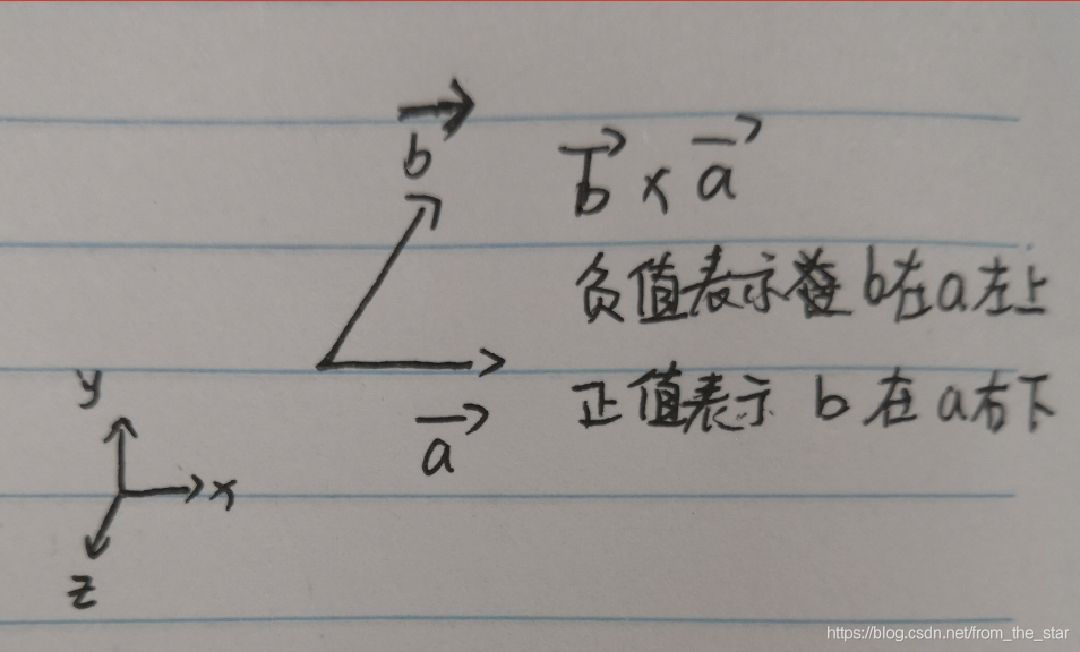 b
b × a
负值表示 b在a左上
正值表示 b 在 a右下
a
y
x
z
https://blog.csdn.net/from_the_star